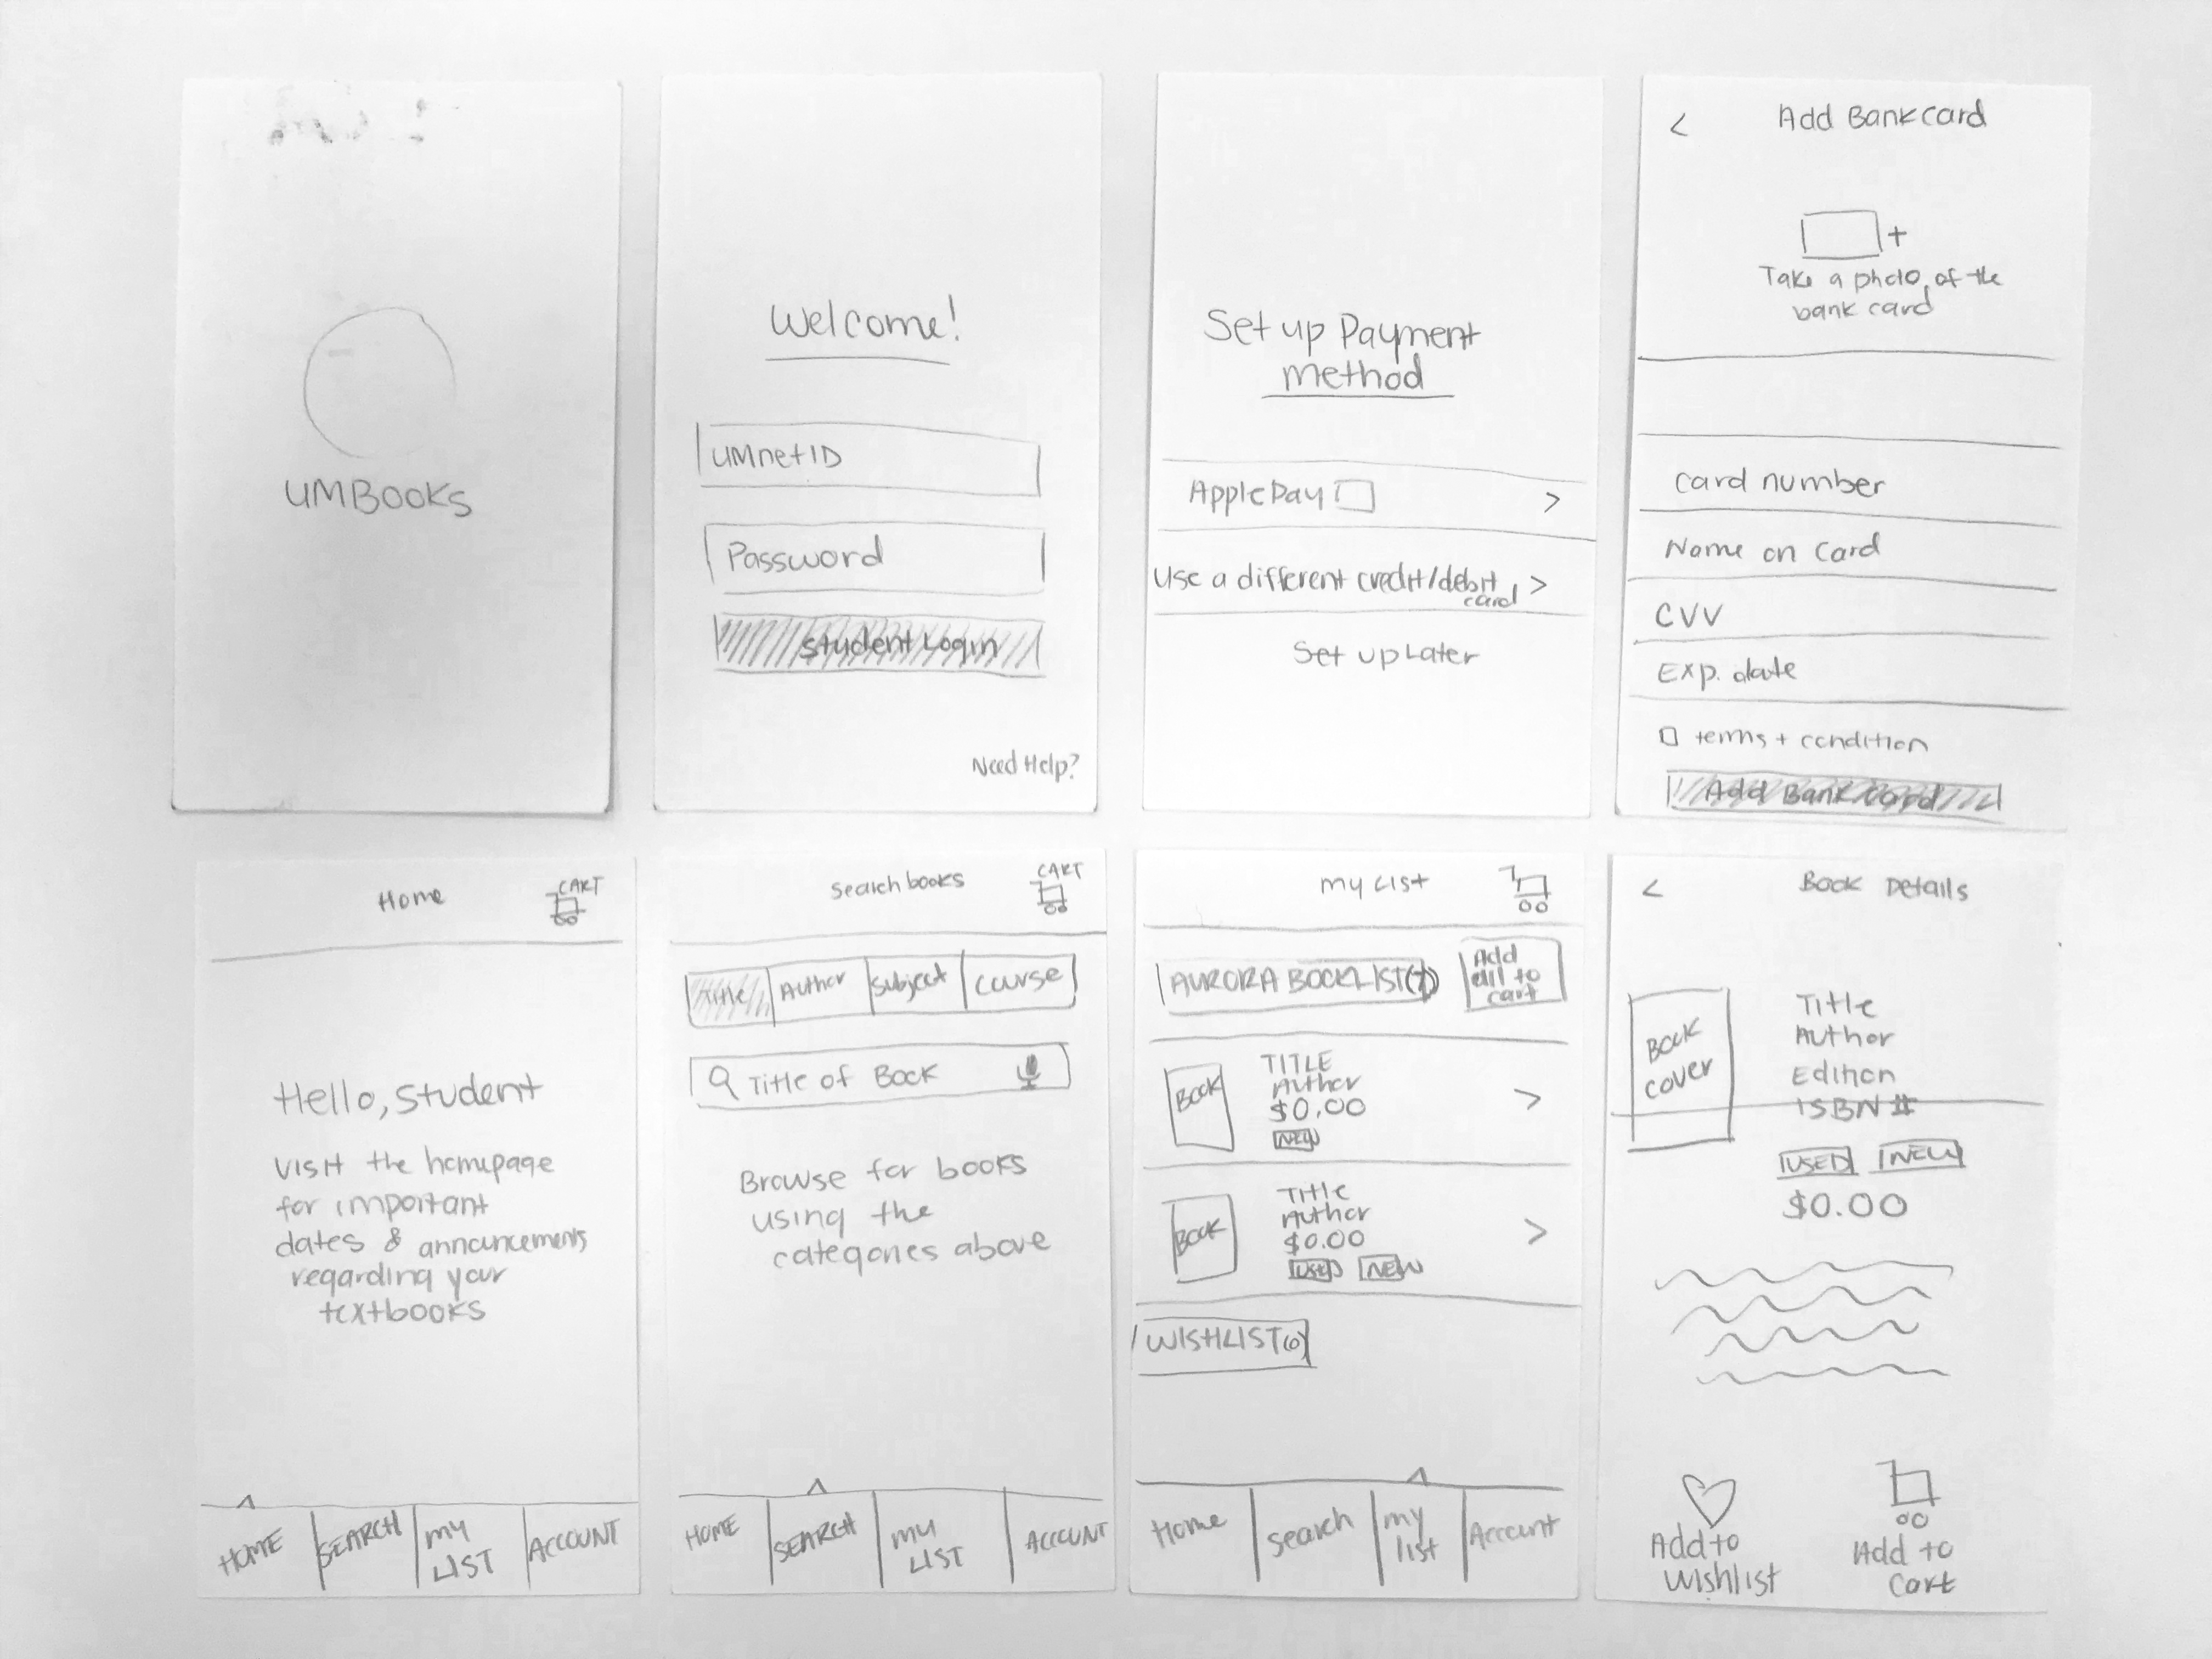 UMBOOKS
Welcome!
UMnetID
Password
Student Login
Need Help?
Set up Payment
method
Apple Pay >
Use a different credit/debit
card >
Set up Later
< Add Bank card
+
Take a photo of the
bank card
card number
Name on card
CVV
Exp. date
terms + condition
Add Bank Card
Home CART
Hello, Student
Visit the homepage
for important
dates & announcements
regarding your
textbooks
HOME SEARCH MY LIST ACCOUNT
Search books CART
Title Author Subject Course
Title of Book
Browse for books
using the
categories above
HOME SEARCH MY LIST ACCOUNT
My List
AURORA BOOKLIST(7) Add all to cart
BOOK
TITLE
Author
$0.00
NEW
>
BOOK
Title
Author
$0.00
USED NEW
>
WISHLIST(0)
Home Search My list Account
< Book Details
Book
cover
Title
Author
Edition
ISBN #
USED NEW
$0.00
Add to
Wishlist
Add to
Cart